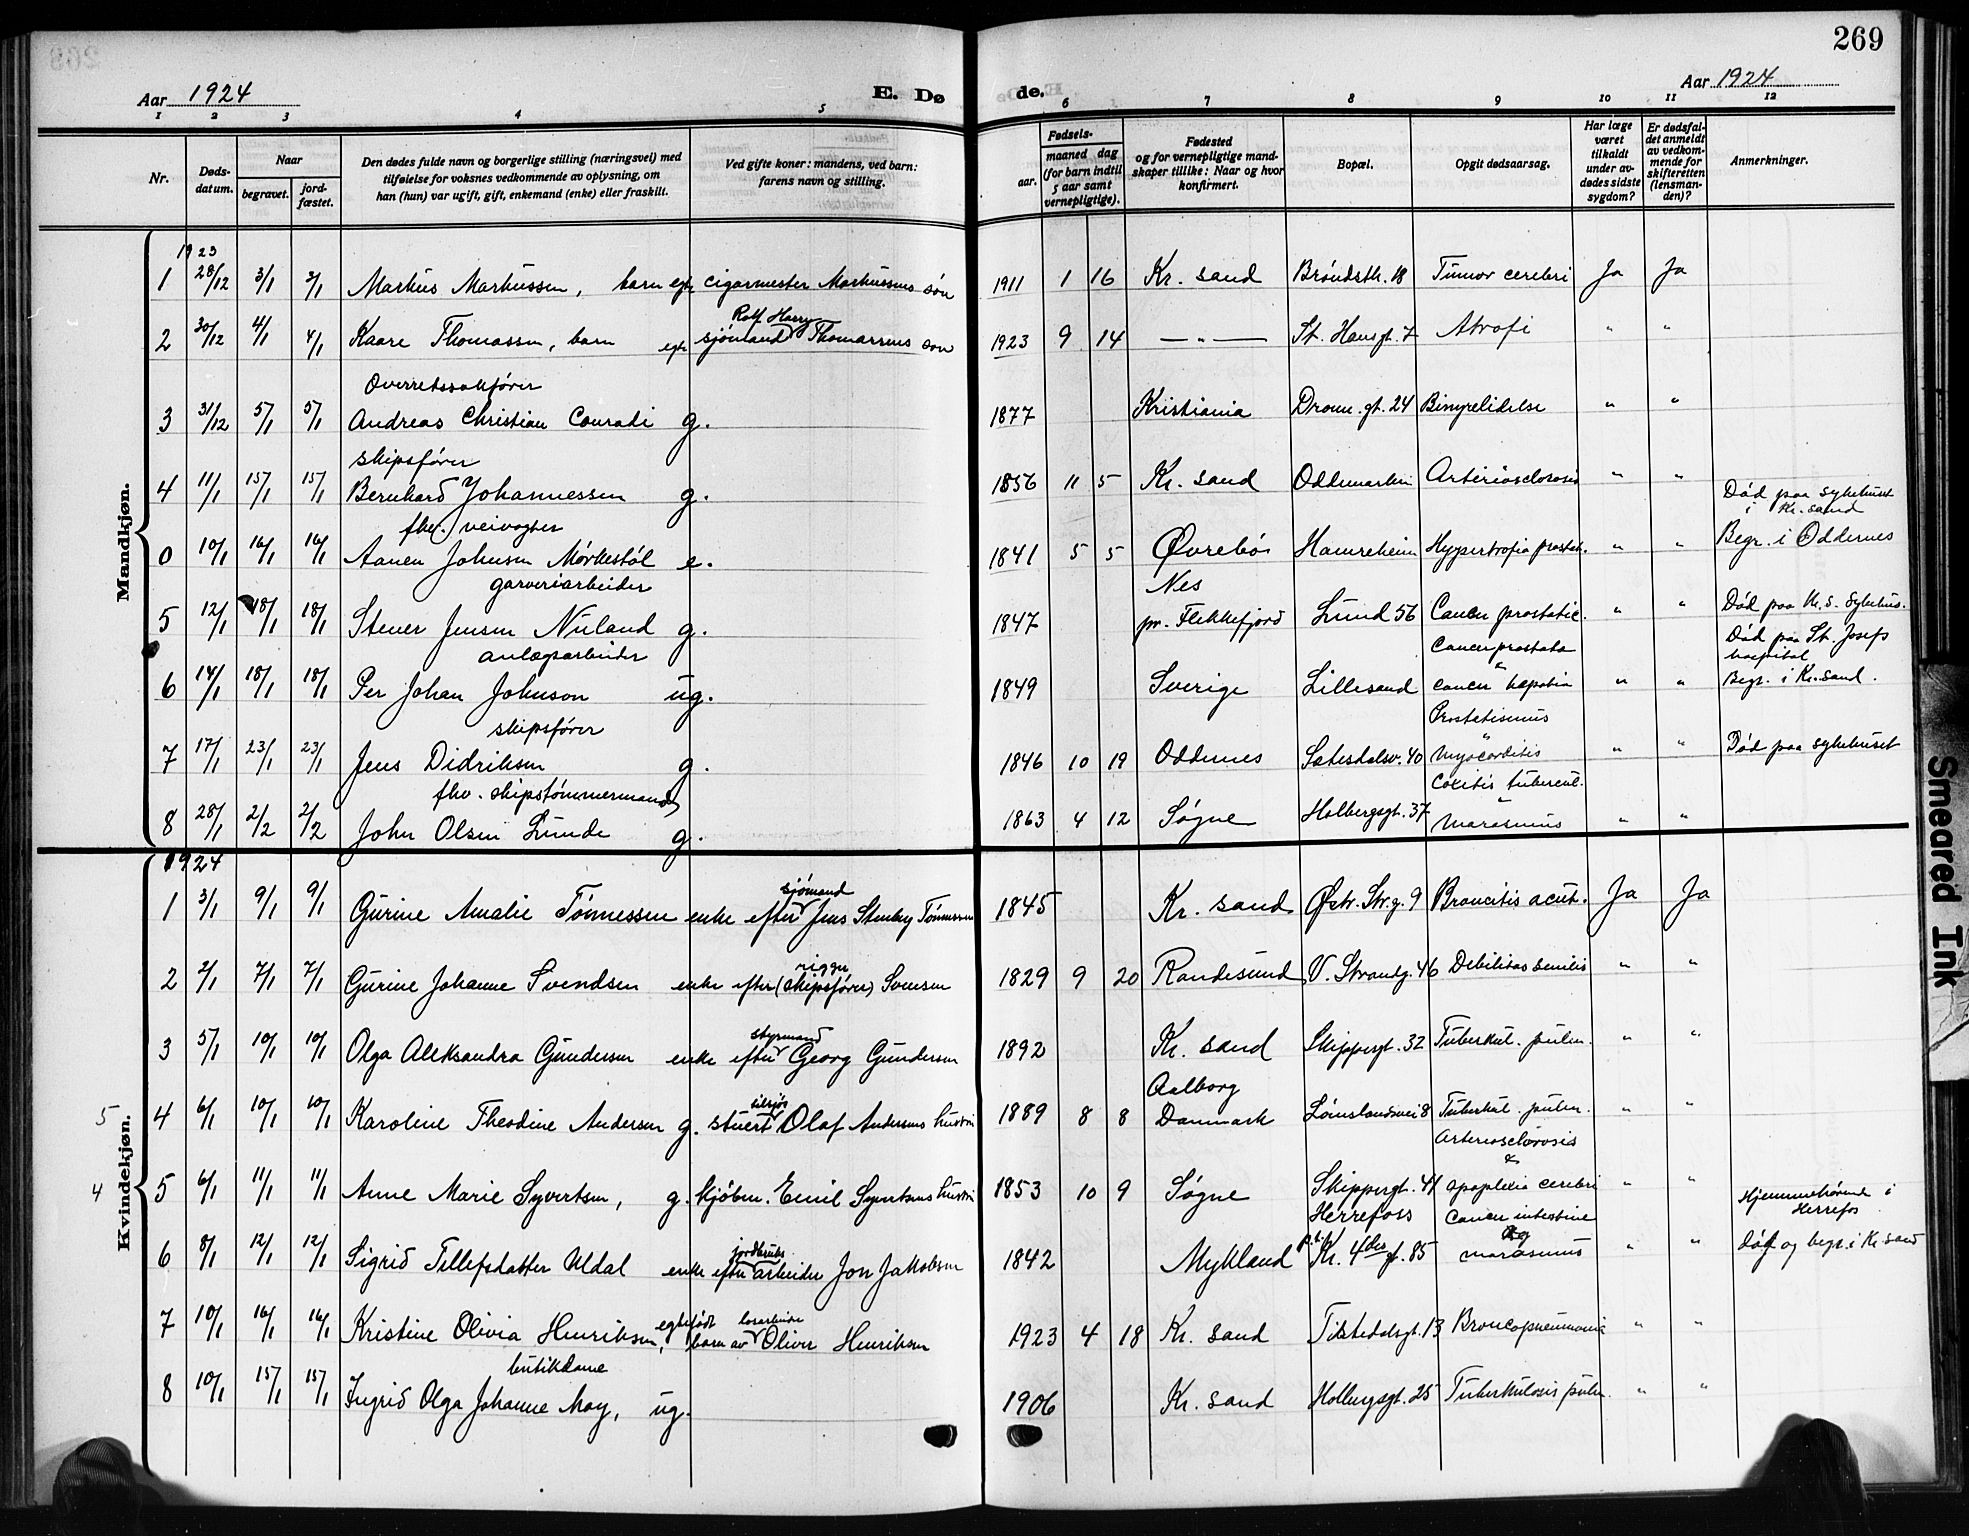 269
Aar 1924 E. Døde. Aar 1924
1 2 3 4 5 6 7 8 9 10 11 12
Nr. Døds-datum. Naar begravet. jord-fæstet. Den dødes fulde navn og borgerlige stilling (næringsvei) med tilføielse for voksnes vedkommende av oplysning, om han (hun) var ugift, gift, enkemand (enke) eller fraskilt. Ved gifte koner: mandens, ved barn: farens navn og stilling. Fødsels- aar. maaned dag (for barn indtil 5 aar samt vernepligtige). Fødested og for vernepligtige mand-skaper tillike: Naar og hvor konfirmert. Bopæl. Opgit dødsaarsag. Har læge været tilkaldt under av-dødes sidste sygdom? Er dødsfal-det anmeldt av vedkom-mende for skifteretten (lensman-den)? Anmerkninger.
Mandkjøn.
1923
1 28/12 3/1 3/1 Markus Markussen, barn egte cigarmester Markussens søn 1911 1 16 Kr. sand Brøndsth. 18 Tumor cerebri Ja Ja
Rolf Harry
2 30/12 4/1 4/1 Kaare Thomassen, barn egte sjømand Thomassens søn 1923 9 14 — " — St. Hansgt. 7 Atrofi " "
Overretssakfører
3 31/12 5/1 5/1 Andreas Christian Conradi g. 1877 Kristiania Dronn. gt. 24 Binyrelidelse " "
skipsfører
4 11/1 15/1 15/1 Bernhard Johannessen g. 1856 11 5 Kr. sand Oddemarken Arteriosclorosis " " Død paa sykehuset i Kr. sand
fhv. veivogter
0 10/1 16/1 16/1 Aanen Johnsen Mørkestøl e. 1841 5 5 Øvrebø Hamreheien Hypertrofia prostat. " " Begr. i Oddernes
garveriarbeider Nes
5 12/1 18/1 18/1 Stener Jensen Nuland g. 1847 pr. Flekkefjord Lund 56 Cancer prostatic. " " Død paa Kr. S. Sykehus.
anlægsarbeider Cancer prostata Død paa St. Josefs hospital
6 14/1 18/1 18/1 Per Johan Johnson ug. 1849 Sverige Lillesand " cancer hepatia " " Begr. i Kr. sand.
skipsfører Prostatismus
7 17/1 23/1 23/1 Jens Didriksen g. 1846 10 19 Oddernes Setesdalsv. 40 " myocarditis " " Død paa sykehuset
fhv. skipstømmermand Coxitis tubercul.
8 28/1 2/2 2/2 John Olsen Lunde g. 1863 4 12 Søgne Holbergsgt. 37 " marasmus " "
Kvindekjøn.
1924
sjømand
1 3/1 9/1 9/1 Gurine Amalie Tønnessen enke efter Jens Stenberg Tønnessen 1845 Kr. sand Østr. Str. g. 9 Broncitis acut. Ja Ja
rigger
2 2/1 7/1 7/1 Gurine Johanne Svendsen enke efter (skipsfører) Svensen 1829 9 20 Randesund V. Strandg. 46 Debilitas senilis " "
styrmand
3 5/1 10/1 10/1 Olga Aleksandra Gundersen enke efter Georg Gundersen 1892 Kr. sand Skippergt. 32 Tuberkul. pulm. " "
Aalborg
5 4 6/1 10/1 10/1 Karoline Theodine Andersen g. stuert Olaf Andersens hustru 1889 8 8 Danmark Lømslandsvei 8 Tuberkul. pulm. " "
Arteriosclorosis &
4 5 6/1 11/1 11/1 Anne Marie Syvertsen, g. kjøbm. Emil Syvertsens hustru 1853 10 9 Søgne Skippergt. 41 apoplexia cerebri " "
jordbruks Herrefoss Cancer intestine og Hjemmehørende i Herrefos
6 8/1 12/1 12/1 Sigrid Tellefsdatter Uldal enke efter arbeider Jon Jakobsen 1842 Mykland p.t. Kr. 4des gt. 85 marasmus " " Død og begr. i Kr. sand
7 10/1 16/1 16/1 Kristine Olivia Henriksen, egtefødt barn av losarbeider Oliver Henriksen 1923 4 18 Kr. sand Tilstedalsgt. 13 Broncopneumonia " "
butikdame
8 10/1 15/1 15/1 Ingrid Olga Johanne May, ug. 1906 Kr. sand Holbergsgt. 25 Tuberkulosis pulm. " "
Smeared Ink